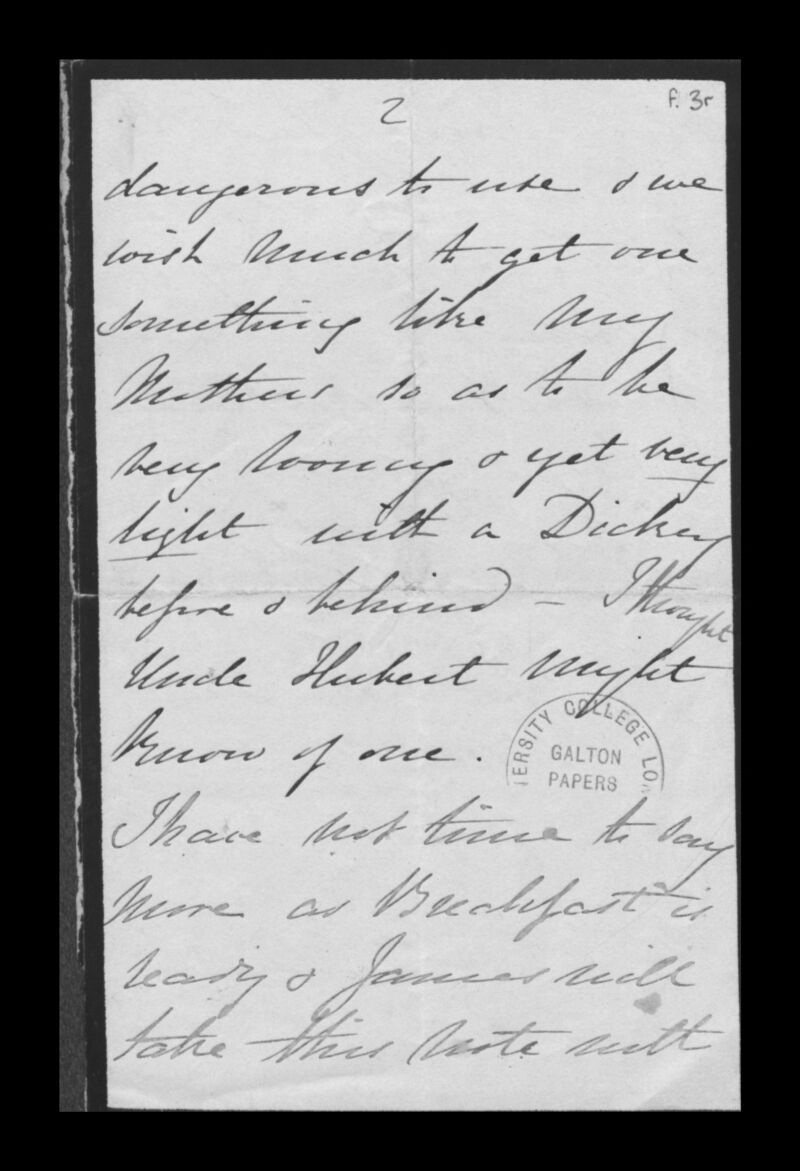 2
f. 3r
dangerous to use & we
wish much to get one
something like my
Mothers so as to be
very roomy & yet very
light with a Dickey
before & behind - I thought
Uncle Hubert might
know of one.
UNIVERSITY COLLEGE LON
GALTON
PAPERS
I have not time to say
more as Breakfast is
ready & James will
take this note with